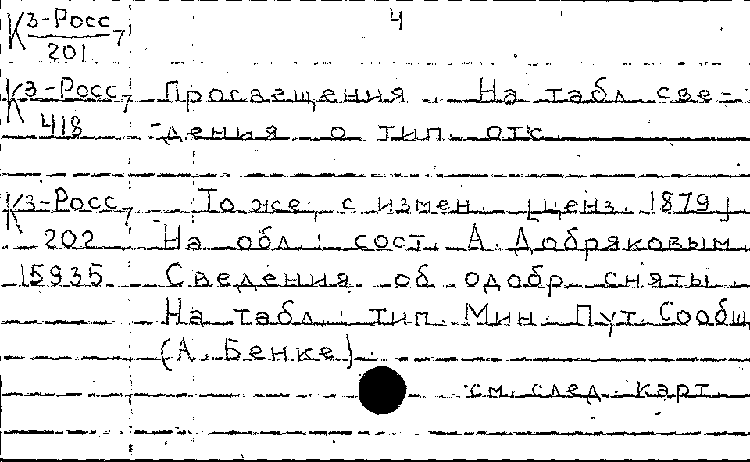 К 3-Росс/201 7 4
К 3-Росс/418 7 Просвещения. На табл. све-
дения о тип. отс.
К 3-Росс/202 7 То же, с измен. [ценз. 1879]
На обл.: сост. А. Добряковым.
15935 Сведения об одобр. сняты.
На табл.: тип. Мин. Пут. Сообщ.
(А. Бенке).
см. след. карт.